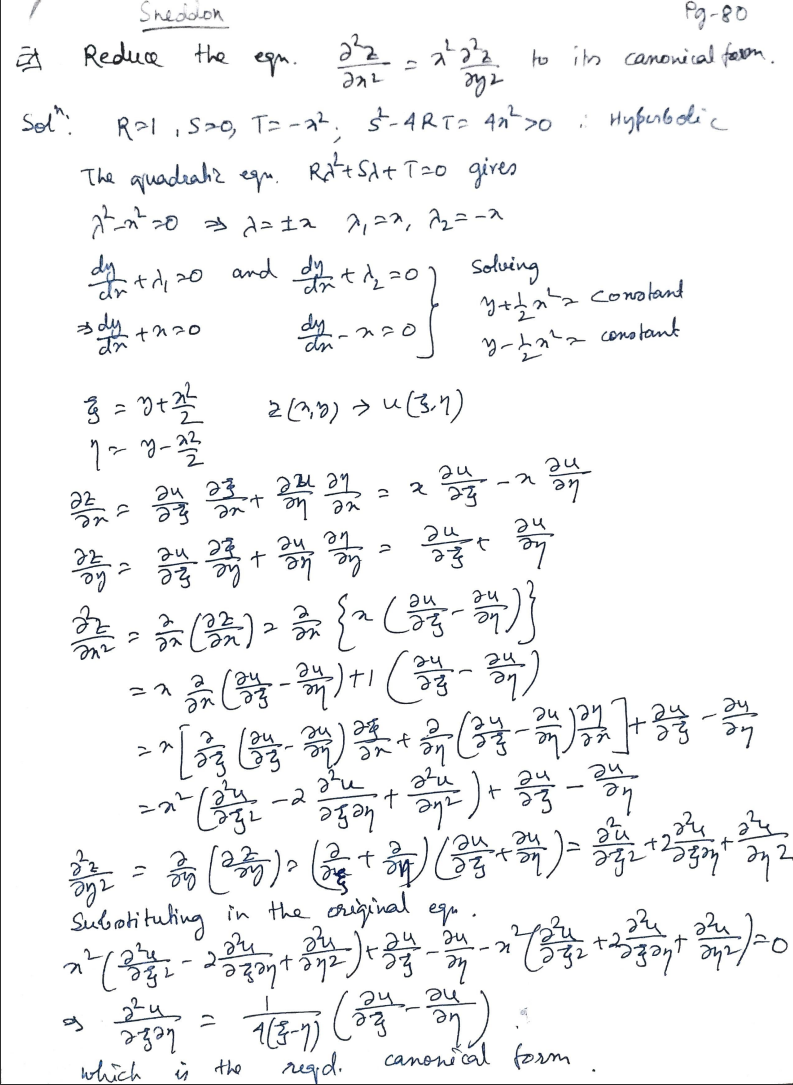 Sneddon Pg-80
Reduce the eqn. ∂²z/∂x² = x² ∂²z/∂y² to its canonical form.
Solⁿ: R=1, S=0, T=-x²; S²-4RT= 4x²>0 ∴ Hyperbolic
The quadratic eqn. Rλ²+Sλ+T=0 gives
λ²-x²=0 ⇒ λ=±x λ₁=x, λ₂=-x
dy/dx + λ₁=0 and dy/dx + λ₂=0 } Solving
⇒ dy/dx + x=0 dy/dx - x=0 y+½x²= constant
y-½x²= constant
ξ = y+x²/2 z(x,y) → u(ξ,η)
η = y-x²/2
∂z/∂x = ∂u/∂ξ ∂ξ/∂x + ∂u/∂η ∂η/∂x = x ∂u/∂ξ - x ∂u/∂η
∂z/∂y = ∂u/∂ξ ∂ξ/∂y + ∂u/∂η ∂η/∂y = ∂u/∂ξ + ∂u/∂η
∂²z/∂x² = ∂/∂x (∂z/∂x) = ∂/∂x {x (∂u/∂ξ - ∂u/∂η)}
= x ∂/∂x (∂u/∂ξ - ∂u/∂η) + 1 (∂u/∂ξ - ∂u/∂η)
= x [∂/∂ξ (∂u/∂ξ - ∂u/∂η) ∂ξ/∂x + ∂/∂η (∂u/∂ξ - ∂u/∂η) ∂η/∂x] + ∂u/∂ξ - ∂u/∂η
= x² (∂²u/∂ξ² - 2 ∂²u/∂ξ∂η + ∂²u/∂η²) + ∂u/∂ξ - ∂u/∂η
∂²z/∂y² = ∂/∂y (∂z/∂y) = (∂/∂ξ + ∂/∂η) (∂u/∂ξ + ∂u/∂η) = ∂²u/∂ξ² + 2 ∂²u/∂ξ∂η + ∂²u/∂η²
Substituting in the original eqn.
x² (∂²u/∂ξ² - 2 ∂²u/∂ξ∂η + ∂²u/∂η²) + ∂u/∂ξ - ∂u/∂η - x² (∂²u/∂ξ² + 2 ∂²u/∂ξ∂η + ∂²u/∂η²) = 0
⇒ ∂²u/∂ξ∂η = 1/4(ξ-η) (∂u/∂ξ - ∂u/∂η).
which is the reqd. canonical form.